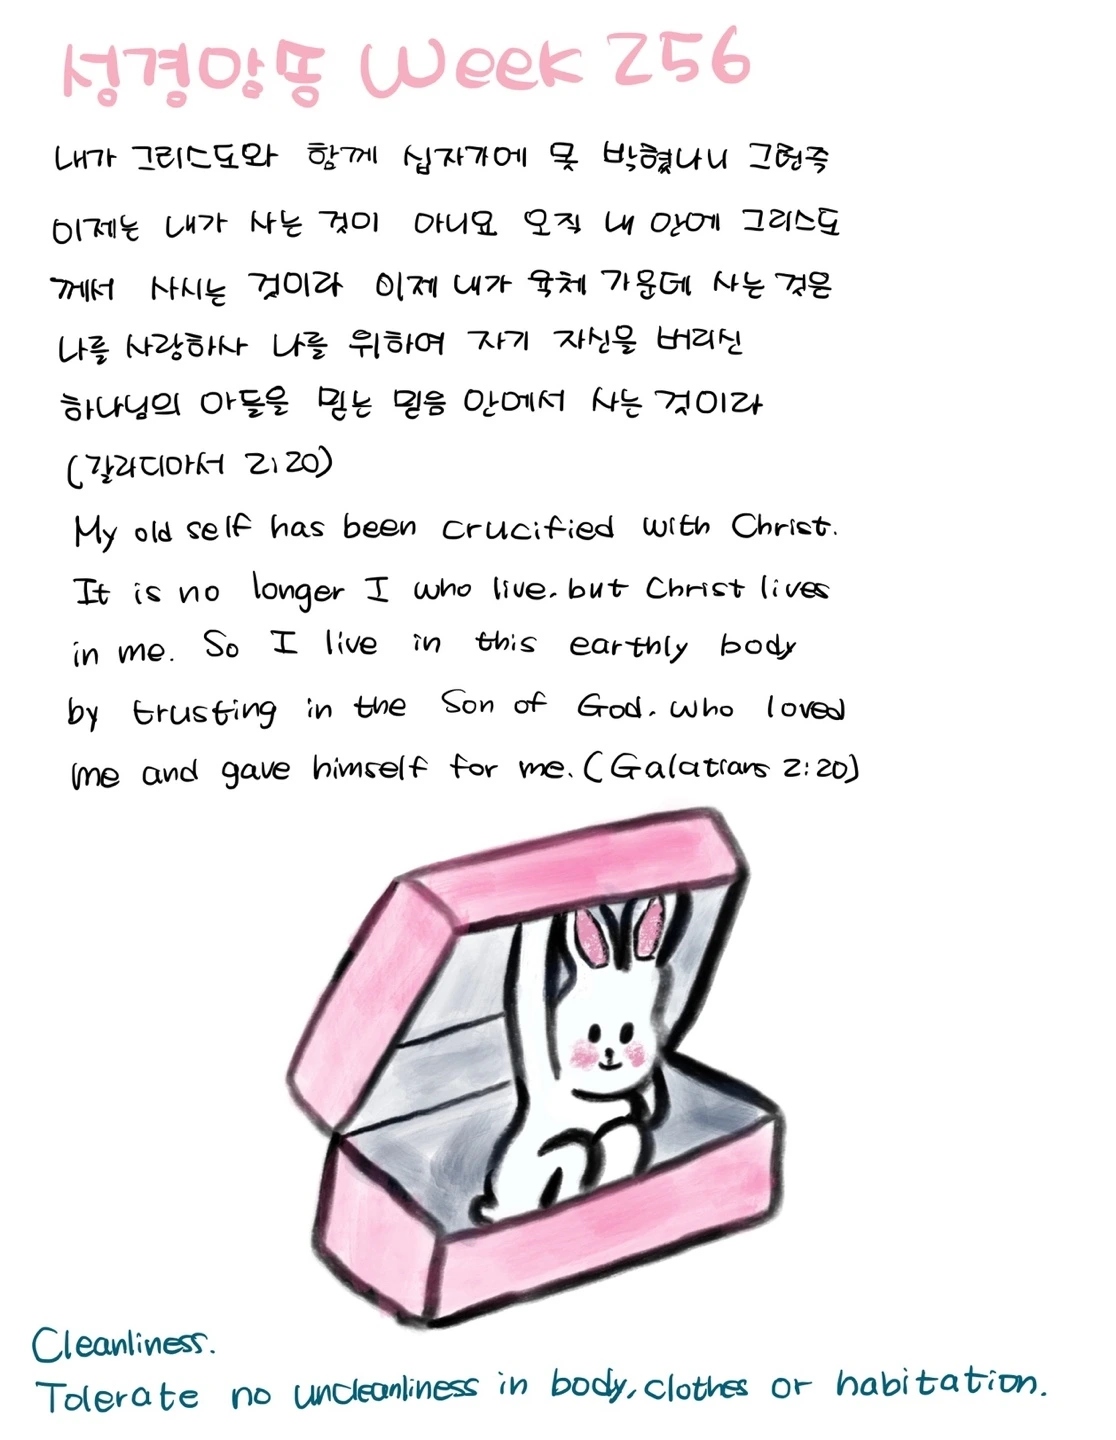 성경암똥 Week 256
내가 그리스도와 함께 십자가에 못 박혔나니 그런즉
이제는 내가 사는 것이 아니요 오직 내 안에 그리스도
께서 사시는 것이라 이제 내가 육체 가운데 사는 것은
나를 사랑하사 나를 위하여 자기 자신을 버리신
하나님의 아들을 믿는 믿음 안에서 사는 것이라
(갈라디아서 2:20)
My old self has been crucified with Christ.
It is no longer I who live. but Christ lives
in me. So I live in this earthly body
by trusting in the Son of God. who loved
me and gave himself for me. (Galatians 2:20)
Cleanliness.
Tolerate no uncleanliness in body, clothes or habitation.